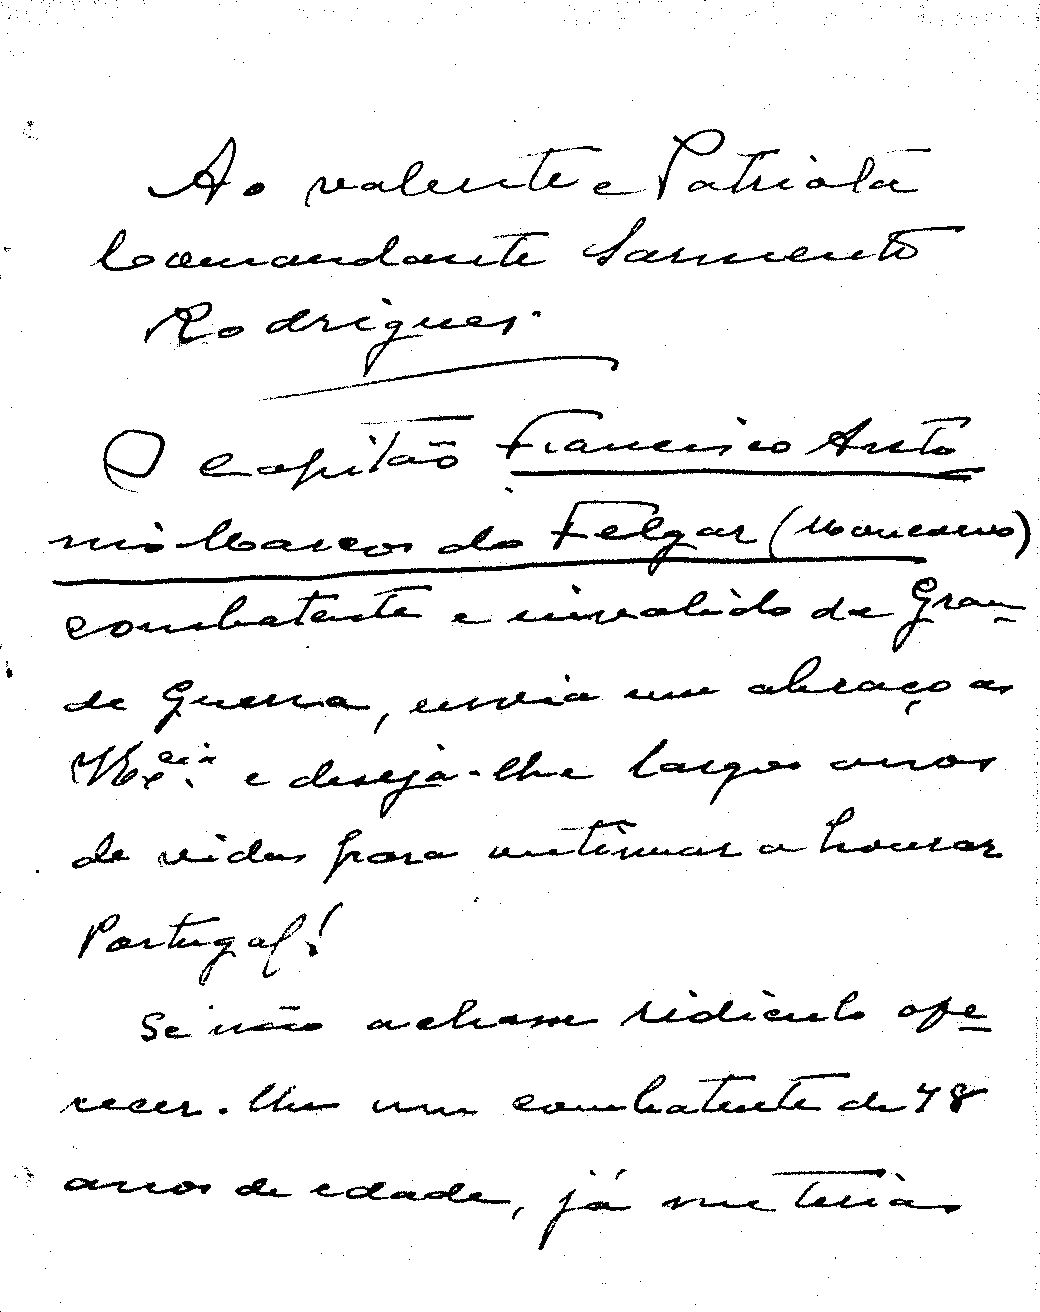 Ao valente e Patriota
Comandante Sarmento
Rodrigues.
O capitão Francisco Anto
nio Marcos do Felgar (Moncorvo)
combatente e invalido da Gran-
de Guerra, envia um abraço as
V. Ex.cia e deseja-lhe largos anos
de vidas para continuar a honrar
Portugal!
Se não acham ridiculo ofe-
recer-lhe um combatente de 78
anos de edade, já me terias